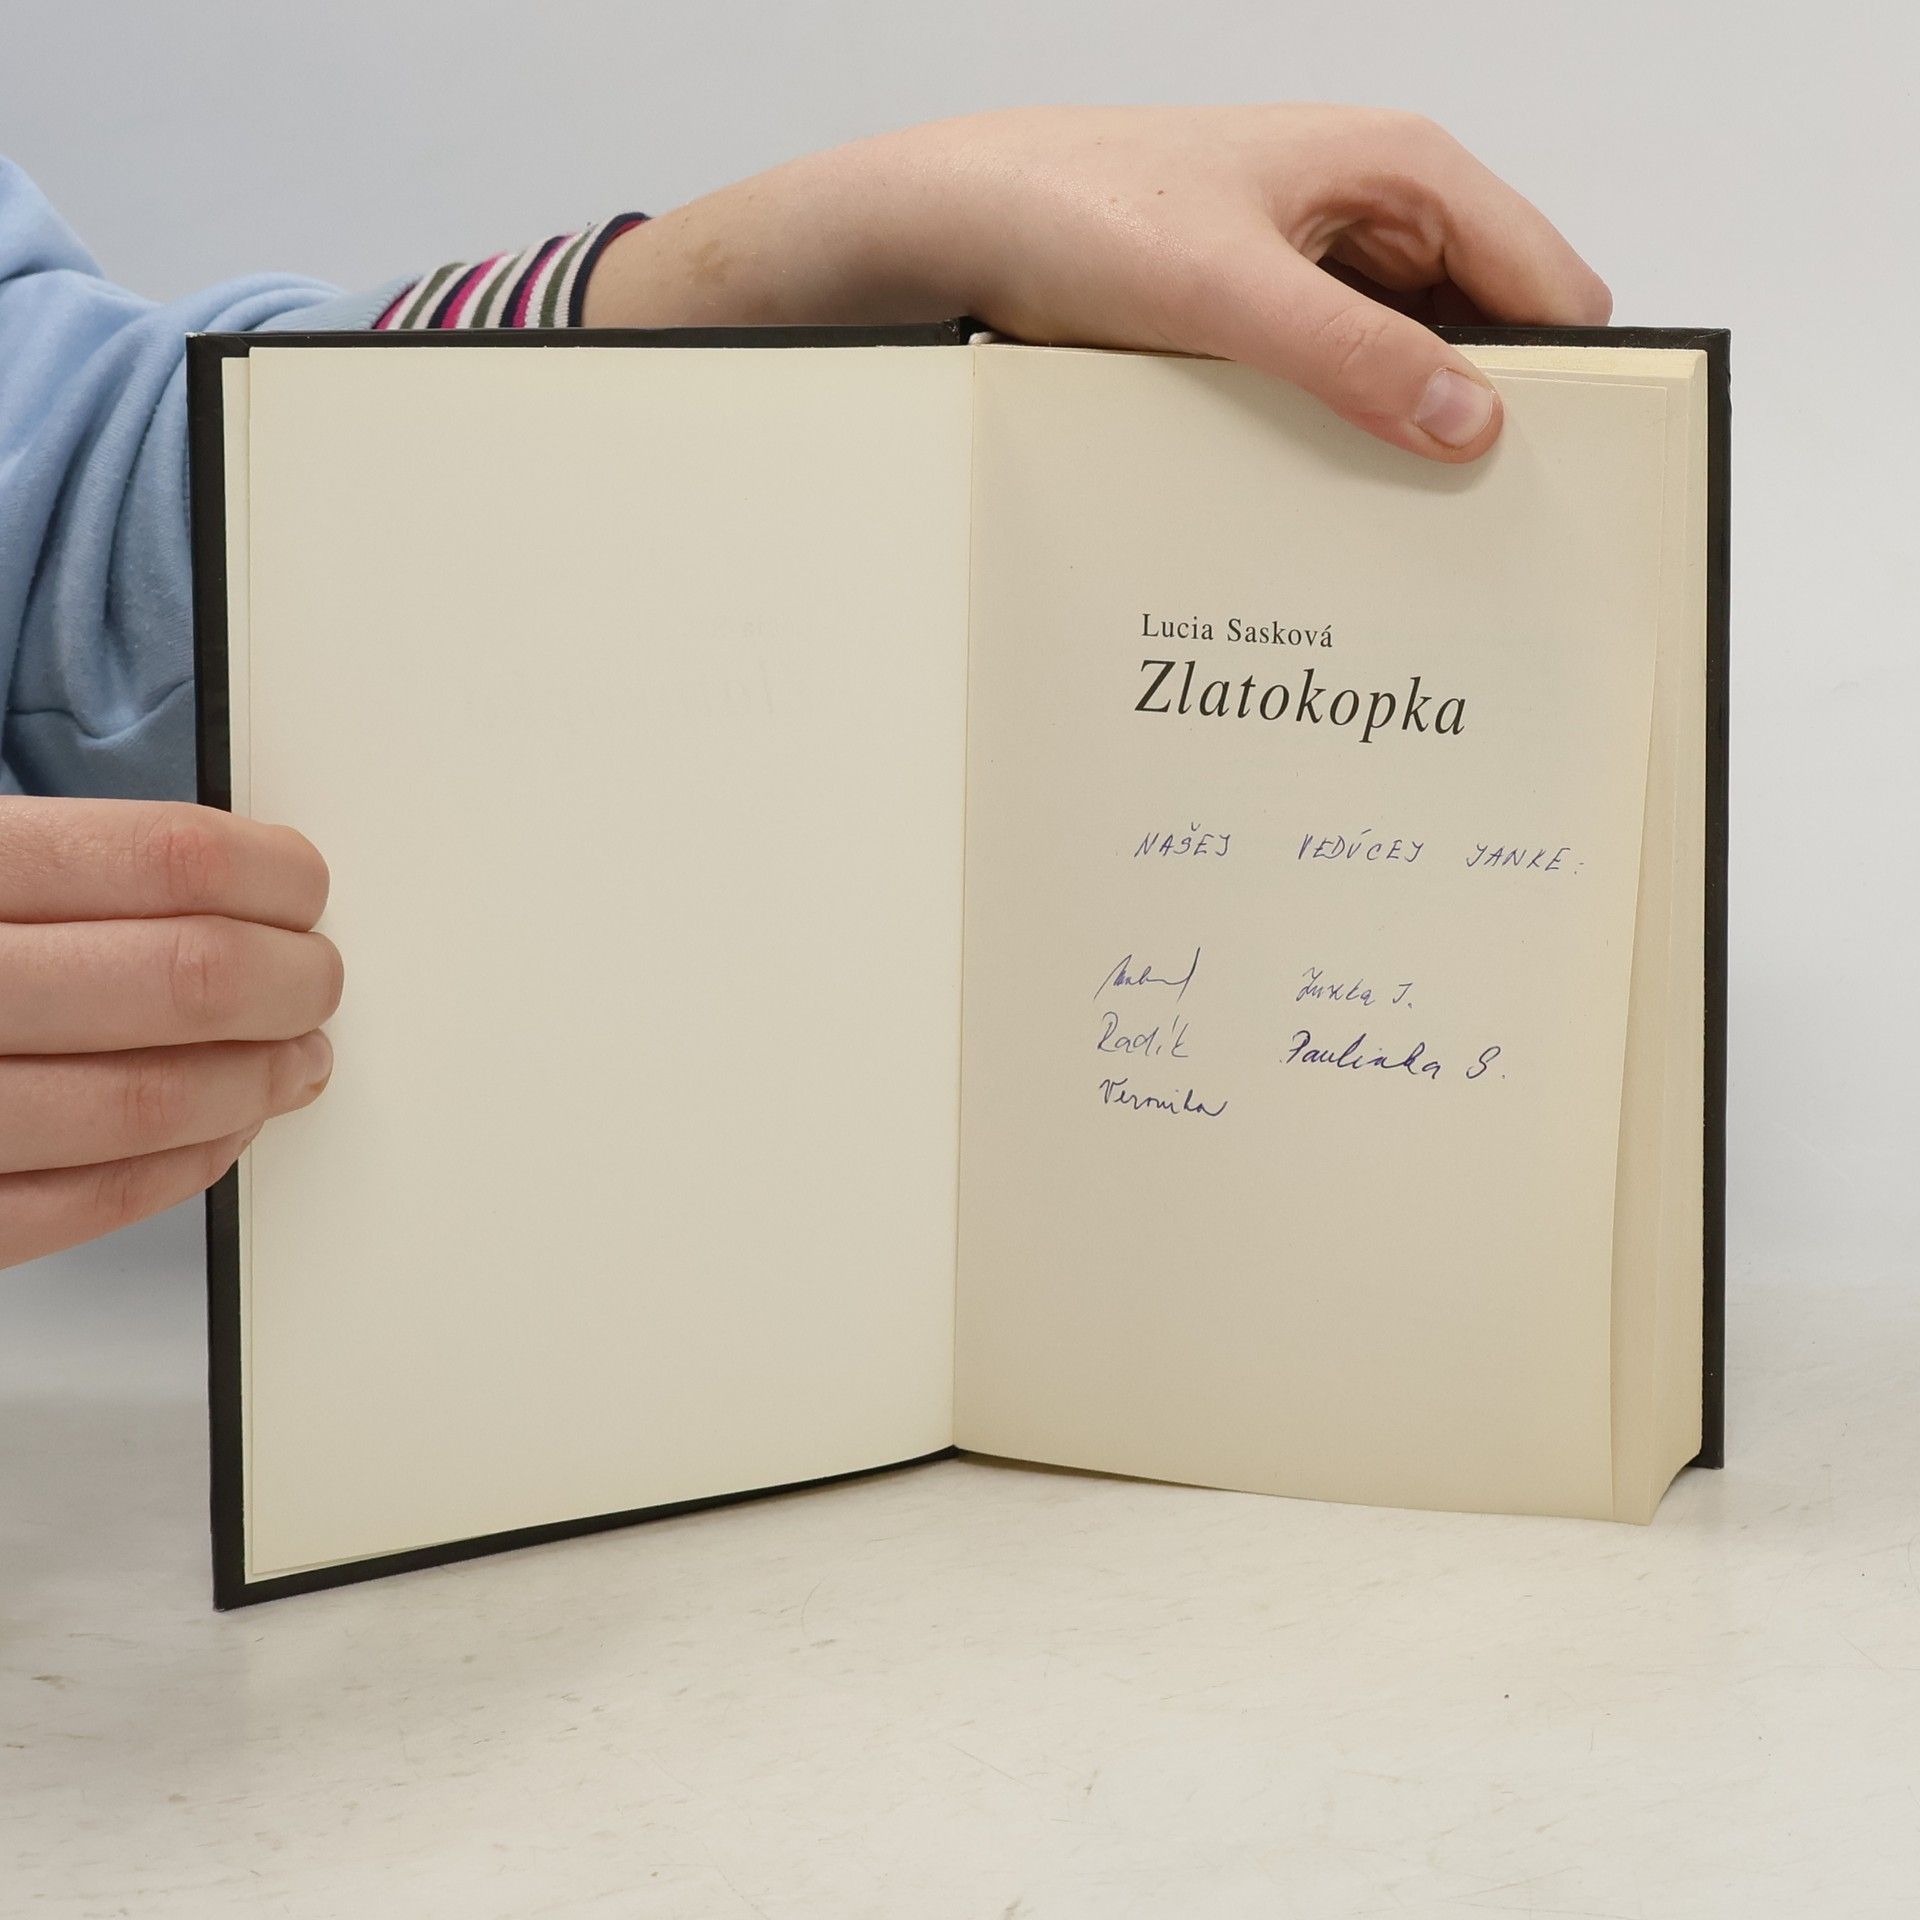 Lucia Sasková
Zlatokopka
NAŠEJ VEDÚCEJ JANKE:
J.
Radík Paulinka S.
Veronika